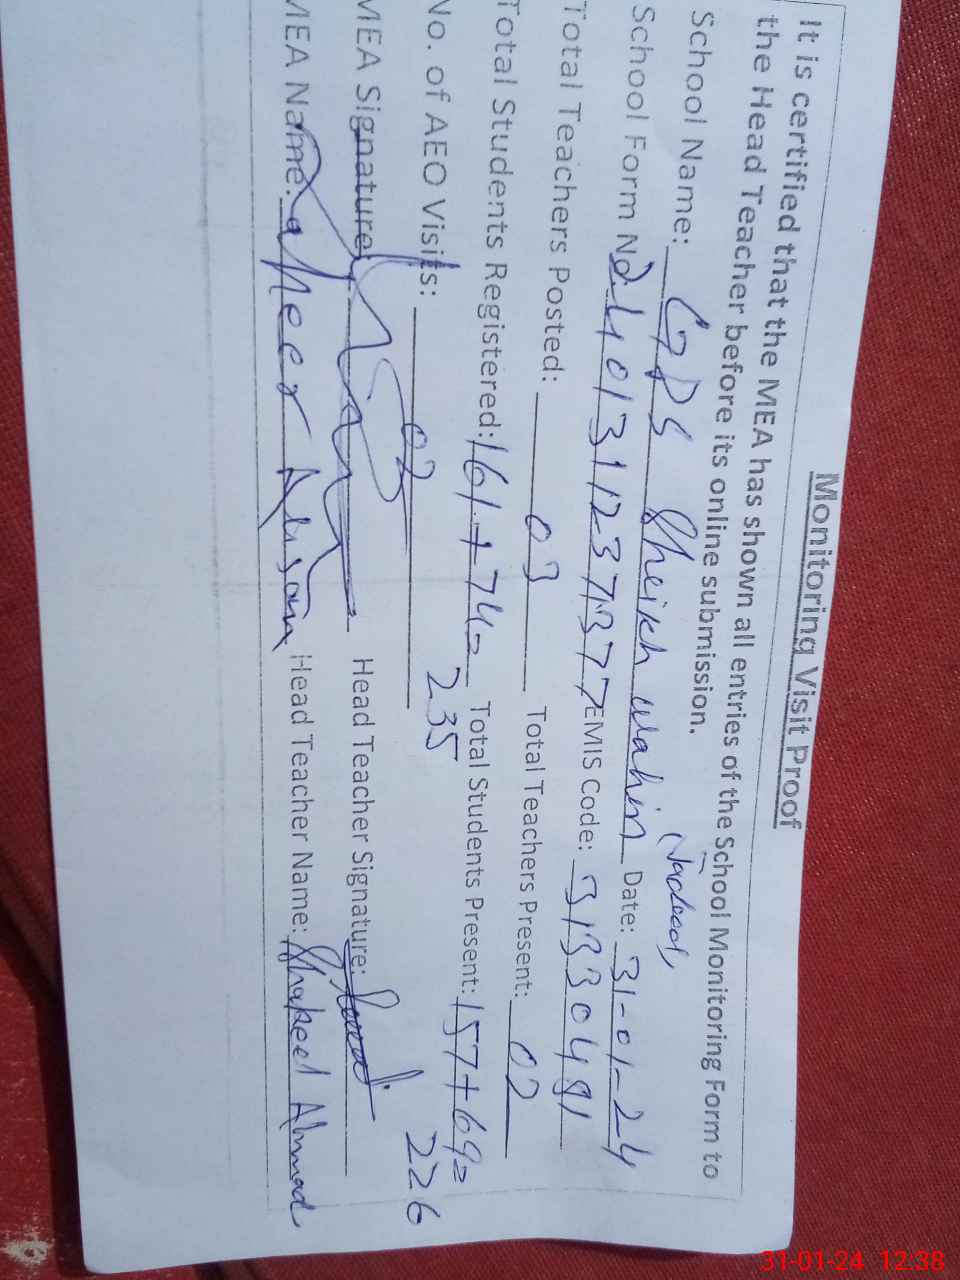 Monitoring Visit Proof
It is certified that the MEA has shown all entries of the School Monitoring Form to
the Head Teacher before its online submission.
(Jadeed)
School Name: GPS Sheikh wahin Date: 31-01-24
School Form No. EMIS Code: 31330481
Total Teachers Posted: 03 Total Teachers Present: 02
Total Students Registered: 161+74= 235 Total Students Present: 157+69= 226
No. of AEO Visits: 02
MEA Signature: Head Teacher Signature:
MEA Name: Ahsan Head Teacher Name: Shakeel Ahmad
31-01-24 12:38